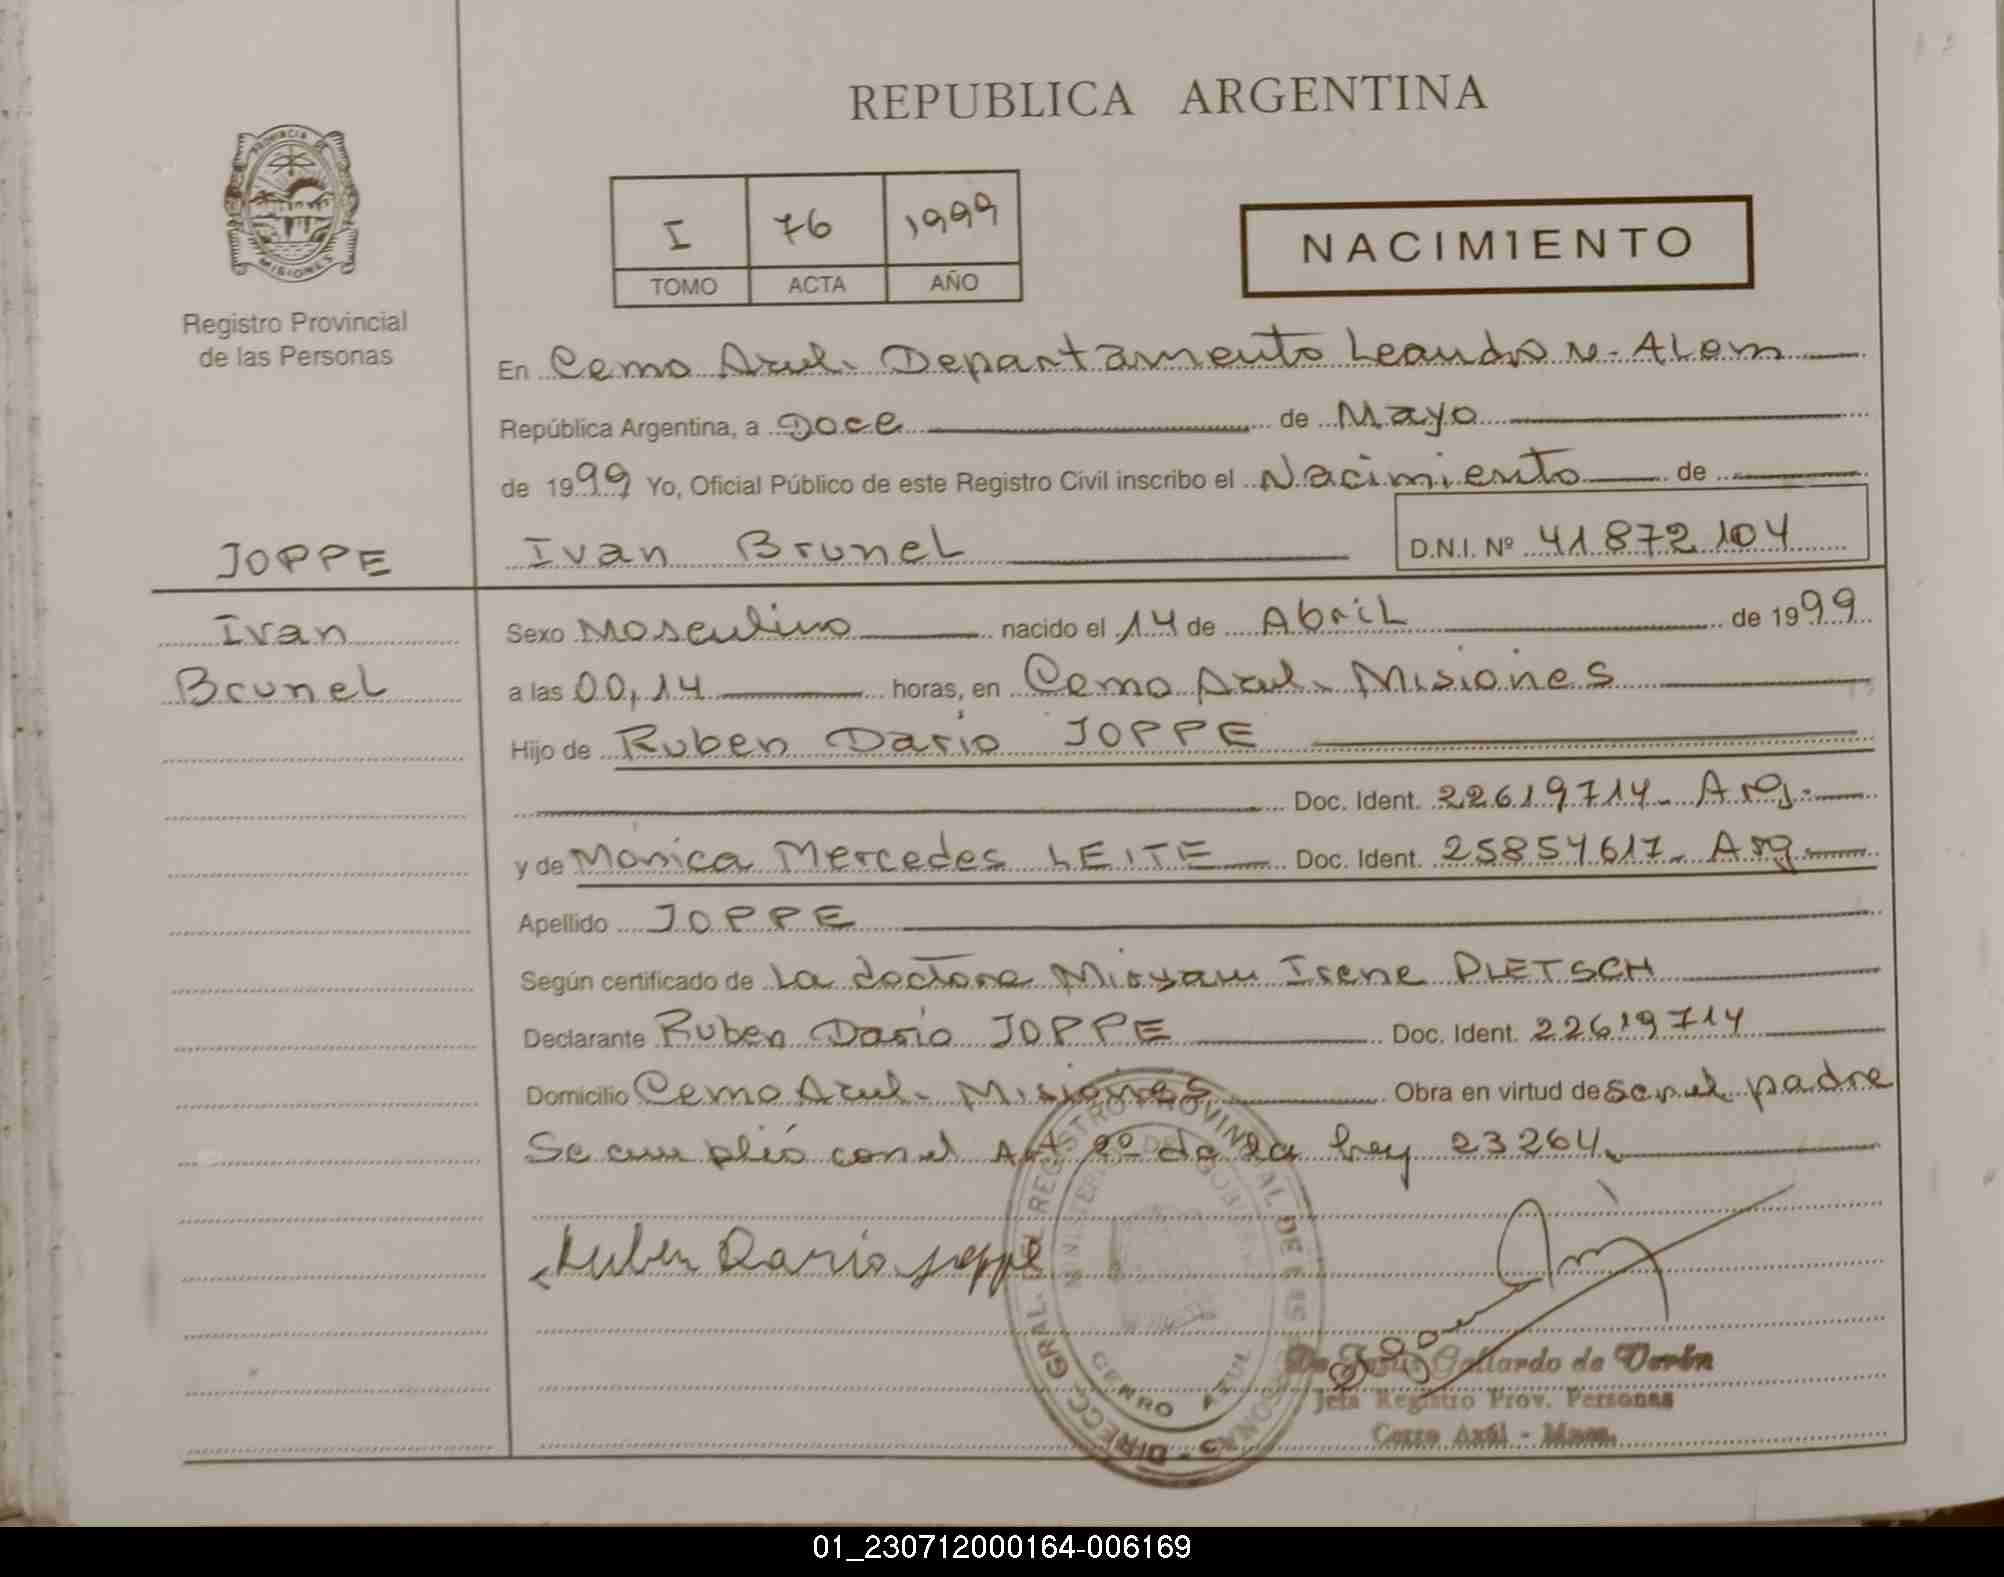 REPUBLICA ARGENTINA
PROVINCIA DE MISIONES
Registro Provincial
de las Personas
I 76 1999
TOMO ACTA AÑO
NACIMIENTO
En Cerro Azul. Departamento Leandro N. Alem
República Argentina, a Doce de Mayo
de 1999 Yo, Oficial Público de este Registro Civil inscribo el Nacimiento de
Ivan Brunel D.N.I. Nº 41872104
JOPPE
Ivan
Brunel
Sexo Masculino nacido el 14 de Abril de 1999
a las 00,14 horas, en Cerro Azul. Misiones
Hijo de Ruben Dario JOPPE
Doc. Ident. 22619714- Arg.
y de Monica Mercedes LEITE Doc. Ident. 25854617- Arg.
Apellido JOPPE
Según certificado de La doctora Miryam Irene PLETSCH
Declarante Ruben Dario JOPPE Doc. Ident. 22619714
Domicilio Cerro Azul- Misiones Obra en virtud de ser el padre
Se cumplió con el Art 2º de la Ley 23264.
Ruben Dario Joppe
DIRECC. GRAL. DEL REGISTRO PROVINCIAL DE LAS PERSONAS
MINISTERIO DE GOBIERNO
CERRO AZUL
Gallardo de Verón
Jefa Registro Prov. Personas
Cerro Azul - Mnes.
01_230712000164-006169